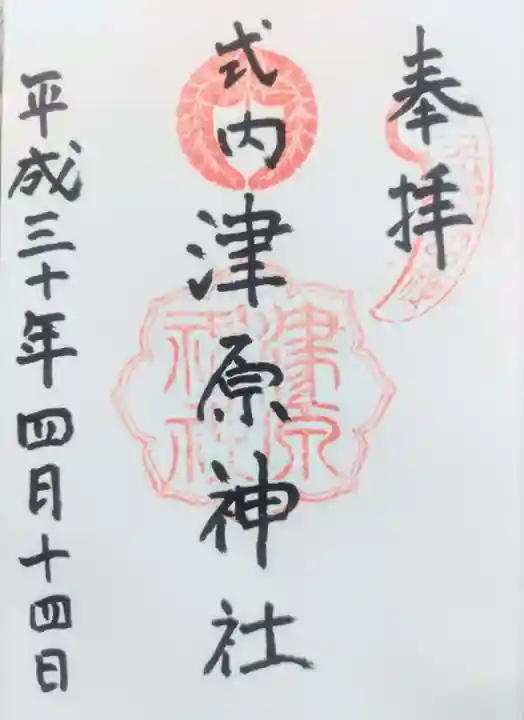 奉拝
式内
津原神社
平成三十年四月十四日
津原
神社